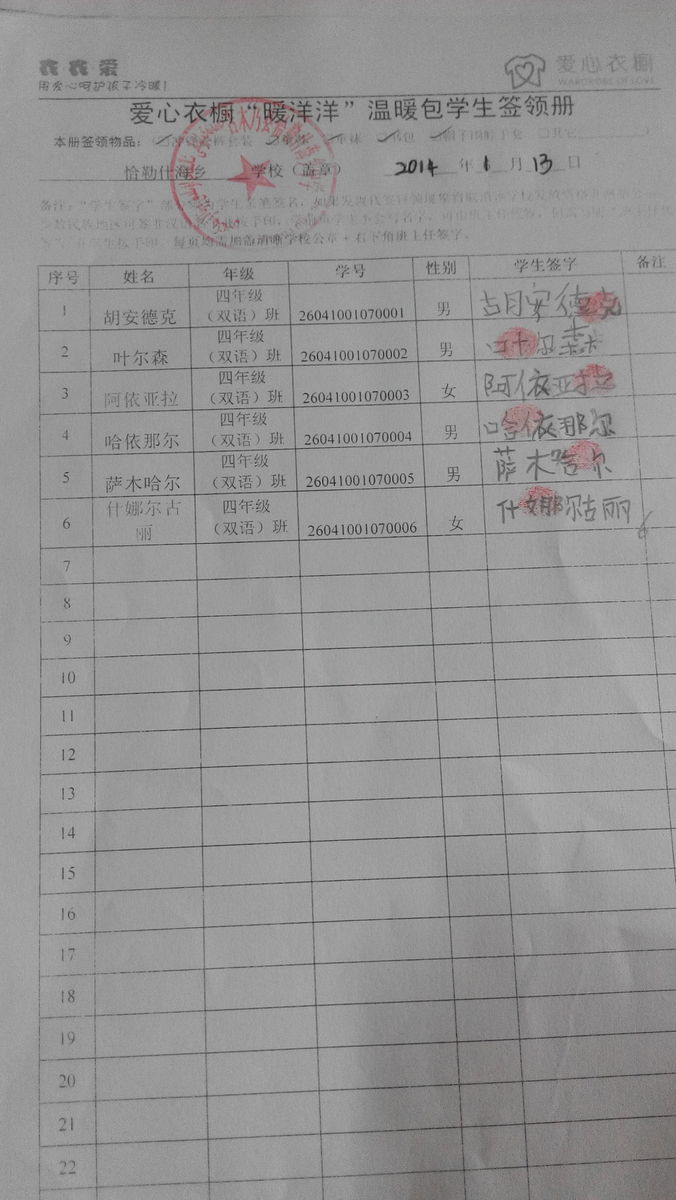 衣衣爱
用爱心呵护孩子冷暖!
爱心衣橱
WARDROBE OF LOVE
爱心衣橱“暖洋洋”温暖包学生签领册
本册签领物品:
恰勒什海乡 学校(盖章) 2014 年 1 月 13 日
每页均需加盖清晰学校公章+右下角班主任签字。
序号 姓名 年级 学号 性别 学生签字 备注
1 胡安德克 四年级(双语)班 26041001070001 男 胡安德克
2 叶尔森 四年级(双语)班 26041001070002 男 叶尔森
3 阿依亚拉 四年级(双语)班 26041001070003 女 阿依亚拉
4 哈依那尔 四年级(双语)班 26041001070004 男 哈依那尔
5 萨木哈尔 四年级(双语)班 26041001070005 男 萨木哈尔
6 什娜尔古丽 四年级(双语)班 26041001070006 女 什娜尔古丽
7
8
9
10
11
12
13
14
15
16
17
18
19
20
21
22